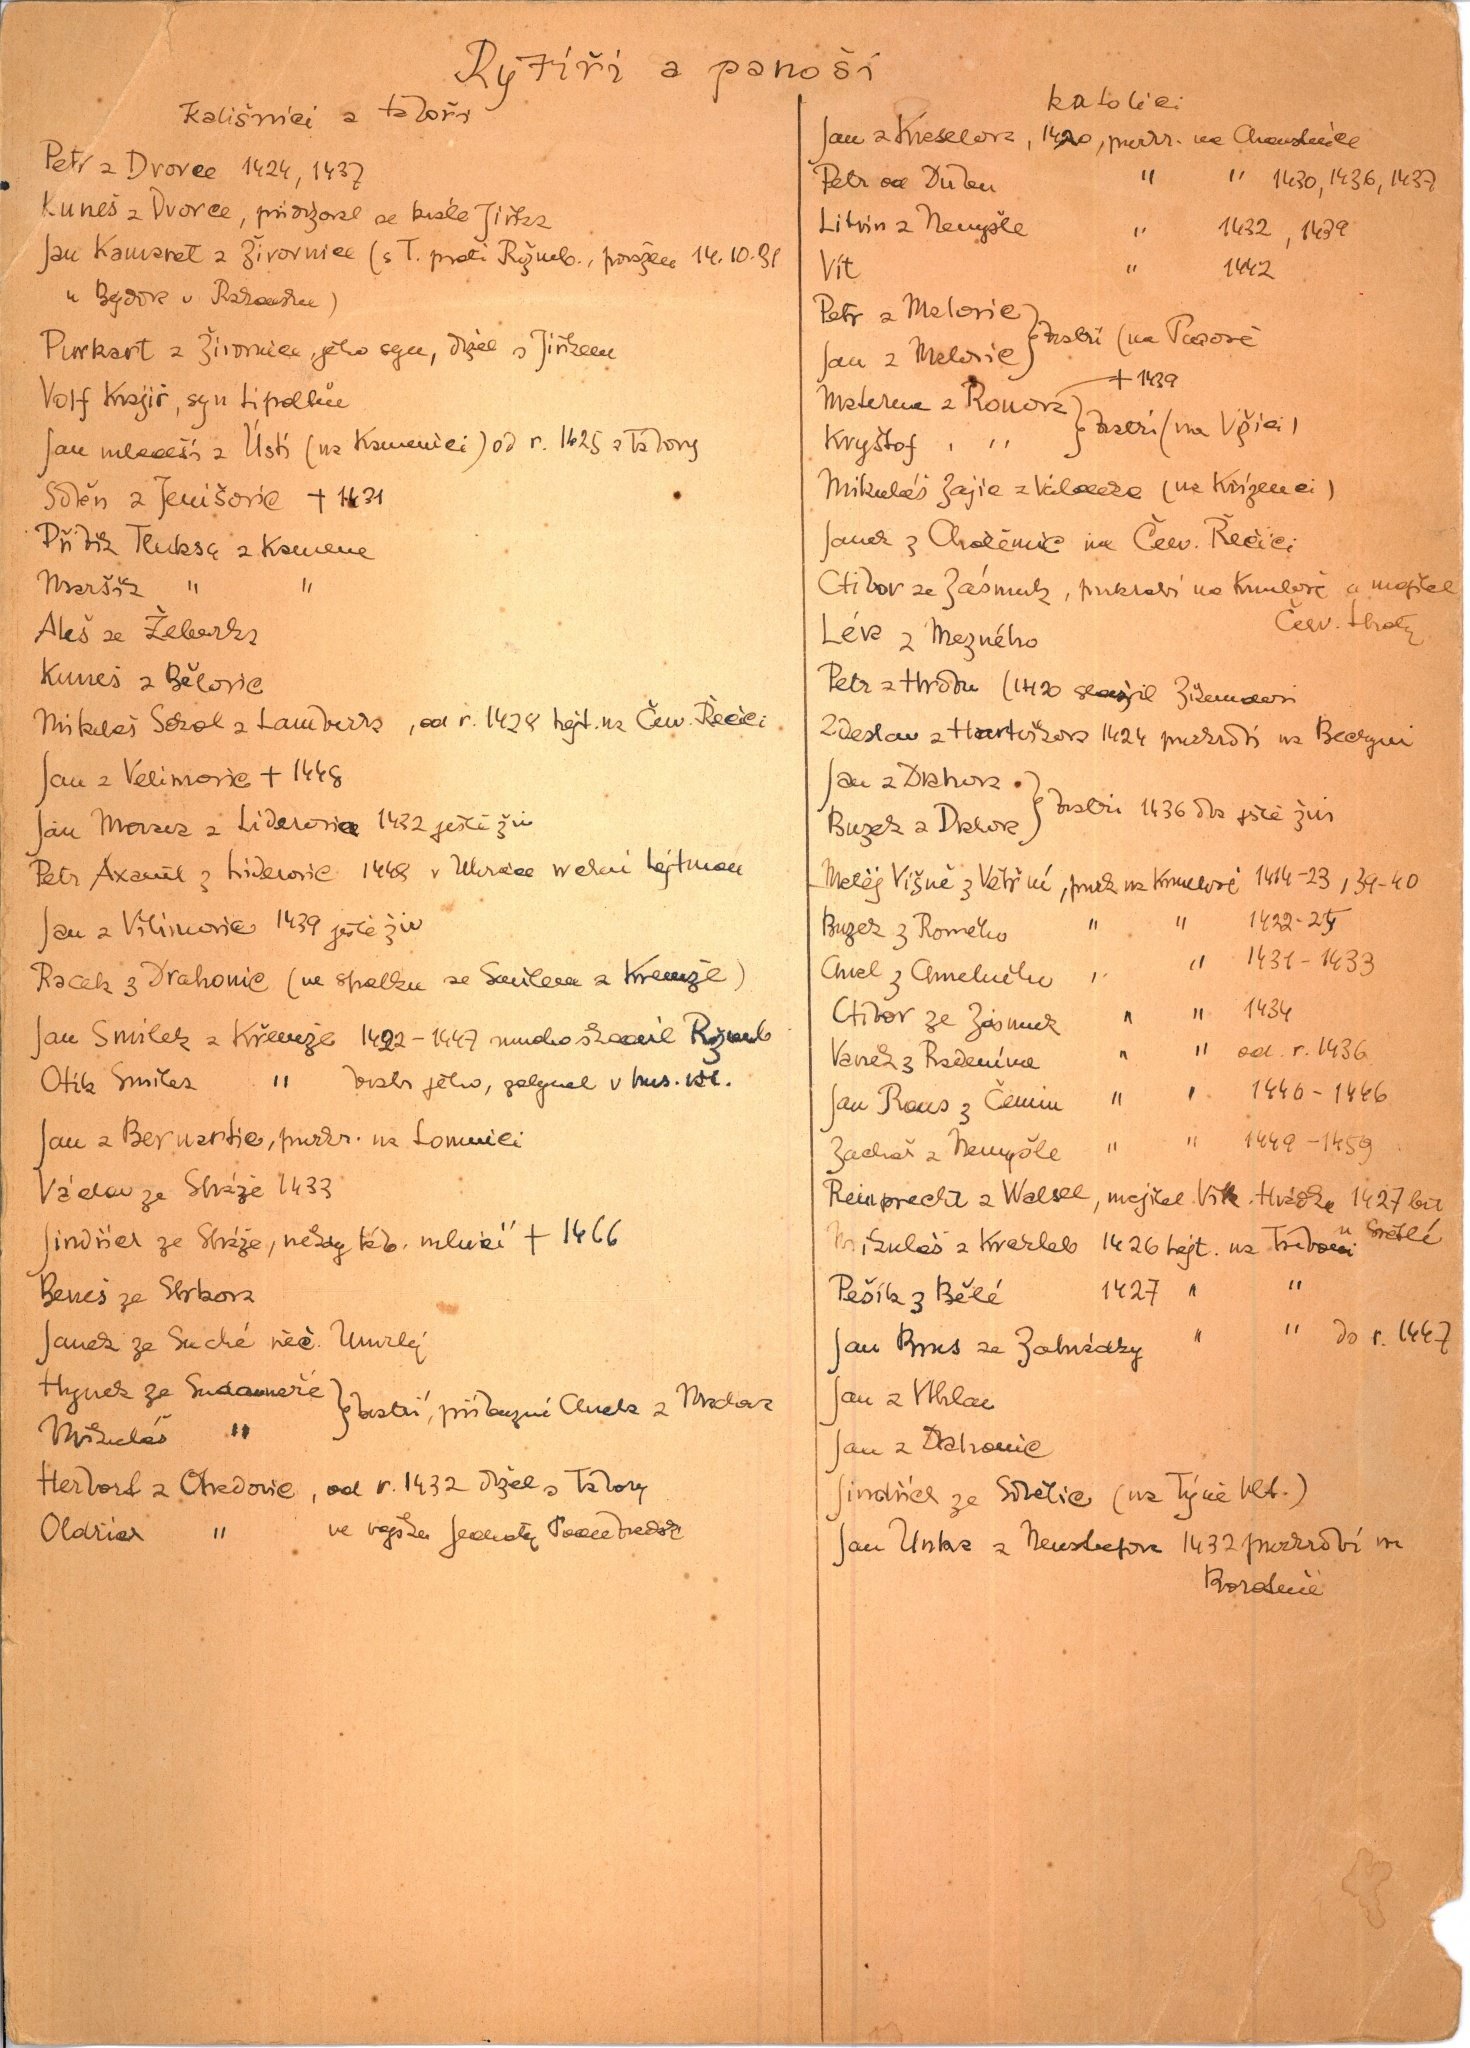 Rytíři a panoši
Kališníci a táboři
Petr z Dvorce 1424, 1437
Kuneš z Dvorce, přidržoval se krále Jiříka
Jan Kamaret z Žirovnice (s T. proti Rožmb., poražen 14.10.31
u Bydova v Rakousku)
Purkart z Žirovnice, jeho syn, držel s Jiříkem
Volf Krajíř, syn Lipoltův
Jan mladší z Ústí (na Kamenici) od r. 1425 s Tábory
Sděn z Jenišovic + 1431
Přibík Tluksa z Kamene
Maršík " "
Aleš ze Žeberka
Kuneš z Bělovic
Mikuláš Sokol z Lamberka, od r. 1428 hejt. na Červ. Řečici
Jan z Velimovic + 1448
Jan Morava z Liderovic 1432 ještě živ
Petr Axamít z Liderovic 1448 v Uhrách hejtman
Jan z Vilimovic 1439 ještě živ
Racek z Drahonic (ve spolku se Smilem z Křemže)
Jan Smilek z Křemže 1422–1447 mnoho škodil Rožmb
Otík Smilek " bratr jeho, zahynul v hus. vál.
Jan z Bernartic, purkr. na Lomnici
Václav ze Stráže 1433
Jindřich ze Stráže, někdy táb. mluvčí + 1466
Beneš ze Strkova
Janek ze Suché řeč. Umrlý
Hynek ze Sudoměře
Mikuláš " } bratří, příbuzní Chvala z Machovic
Herbort z Ohradovic, od r. 1432 držel s Tábory
Oldřich " ve vojsku Jednoty Poděbradské
katolíci
Jan z Kneselova, 1420, purkr. na Choustníce
Petr od Dubu " " 1430, 1436, 1437
Litvín z Nemyšle " 1432, 1439
Vít " 1442
Petr z Malovic
Jan z Malovic } bratří (na Pacově
Materna z Ronova + 1439
Kryštof " " } bratří (na Vžici)
Mikuláš Zajíc z Valdeka (na Křiženci)
Janek z Chotěmic na Červ. Řečici
Ctibor ze Zásmuk, purkrabí na Krumlově a majitel
Červ. Lhoty
Léva z Mezného
Petr z Hrobu (1420 sloužil Žižkovi
Zdeslav z Hartvíkova 1424 purkrabí na Bechyni
Jan z Drahova
Buzek z Drahova } bratři 1436 oba ještě živi
Matěj Višně z Větřní, purk na Krumlově 1414–23, 39–40
Buzek z Rovného " " 1422–25
Chval z Chmelného " " 1431–1433
Ctibor ze Zásmuk " " 1434
Vaněk z Radenína " " od r. 1436
Jan Rous z Čemin " " 1440–1446
Zachař z Nemyšle " " 1449–1459
Reinprecht z Walsee, majitel Vítk. Hrádku 1427 bit
u Světlé
Mikuláš z Kvarleb 1426 hejt. na Třeboni
Pešík z Bělé 1427 " "
Jan Brus ze Zahrádky " " do r. 1447
Jan z Uhlav
Jan z Drahonic
Jindřich ze Sobětic (na Týně Vlt.)
Jan Unka z Neustupova 1432 purkrabí na
Borotíně